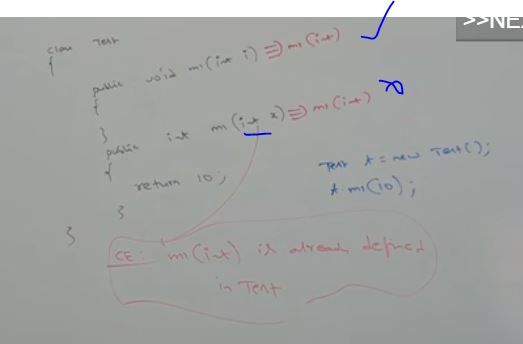 >>NEX
class Test
{
public void m1(int i) ⇒ m1(int) ✓
{
}
public int m1(int x) ⇒ m1(int) ✗
{
return 10;
}
}
Test t = new Test();
t.m1(10);
CE: m1(int) is already defined
in Test